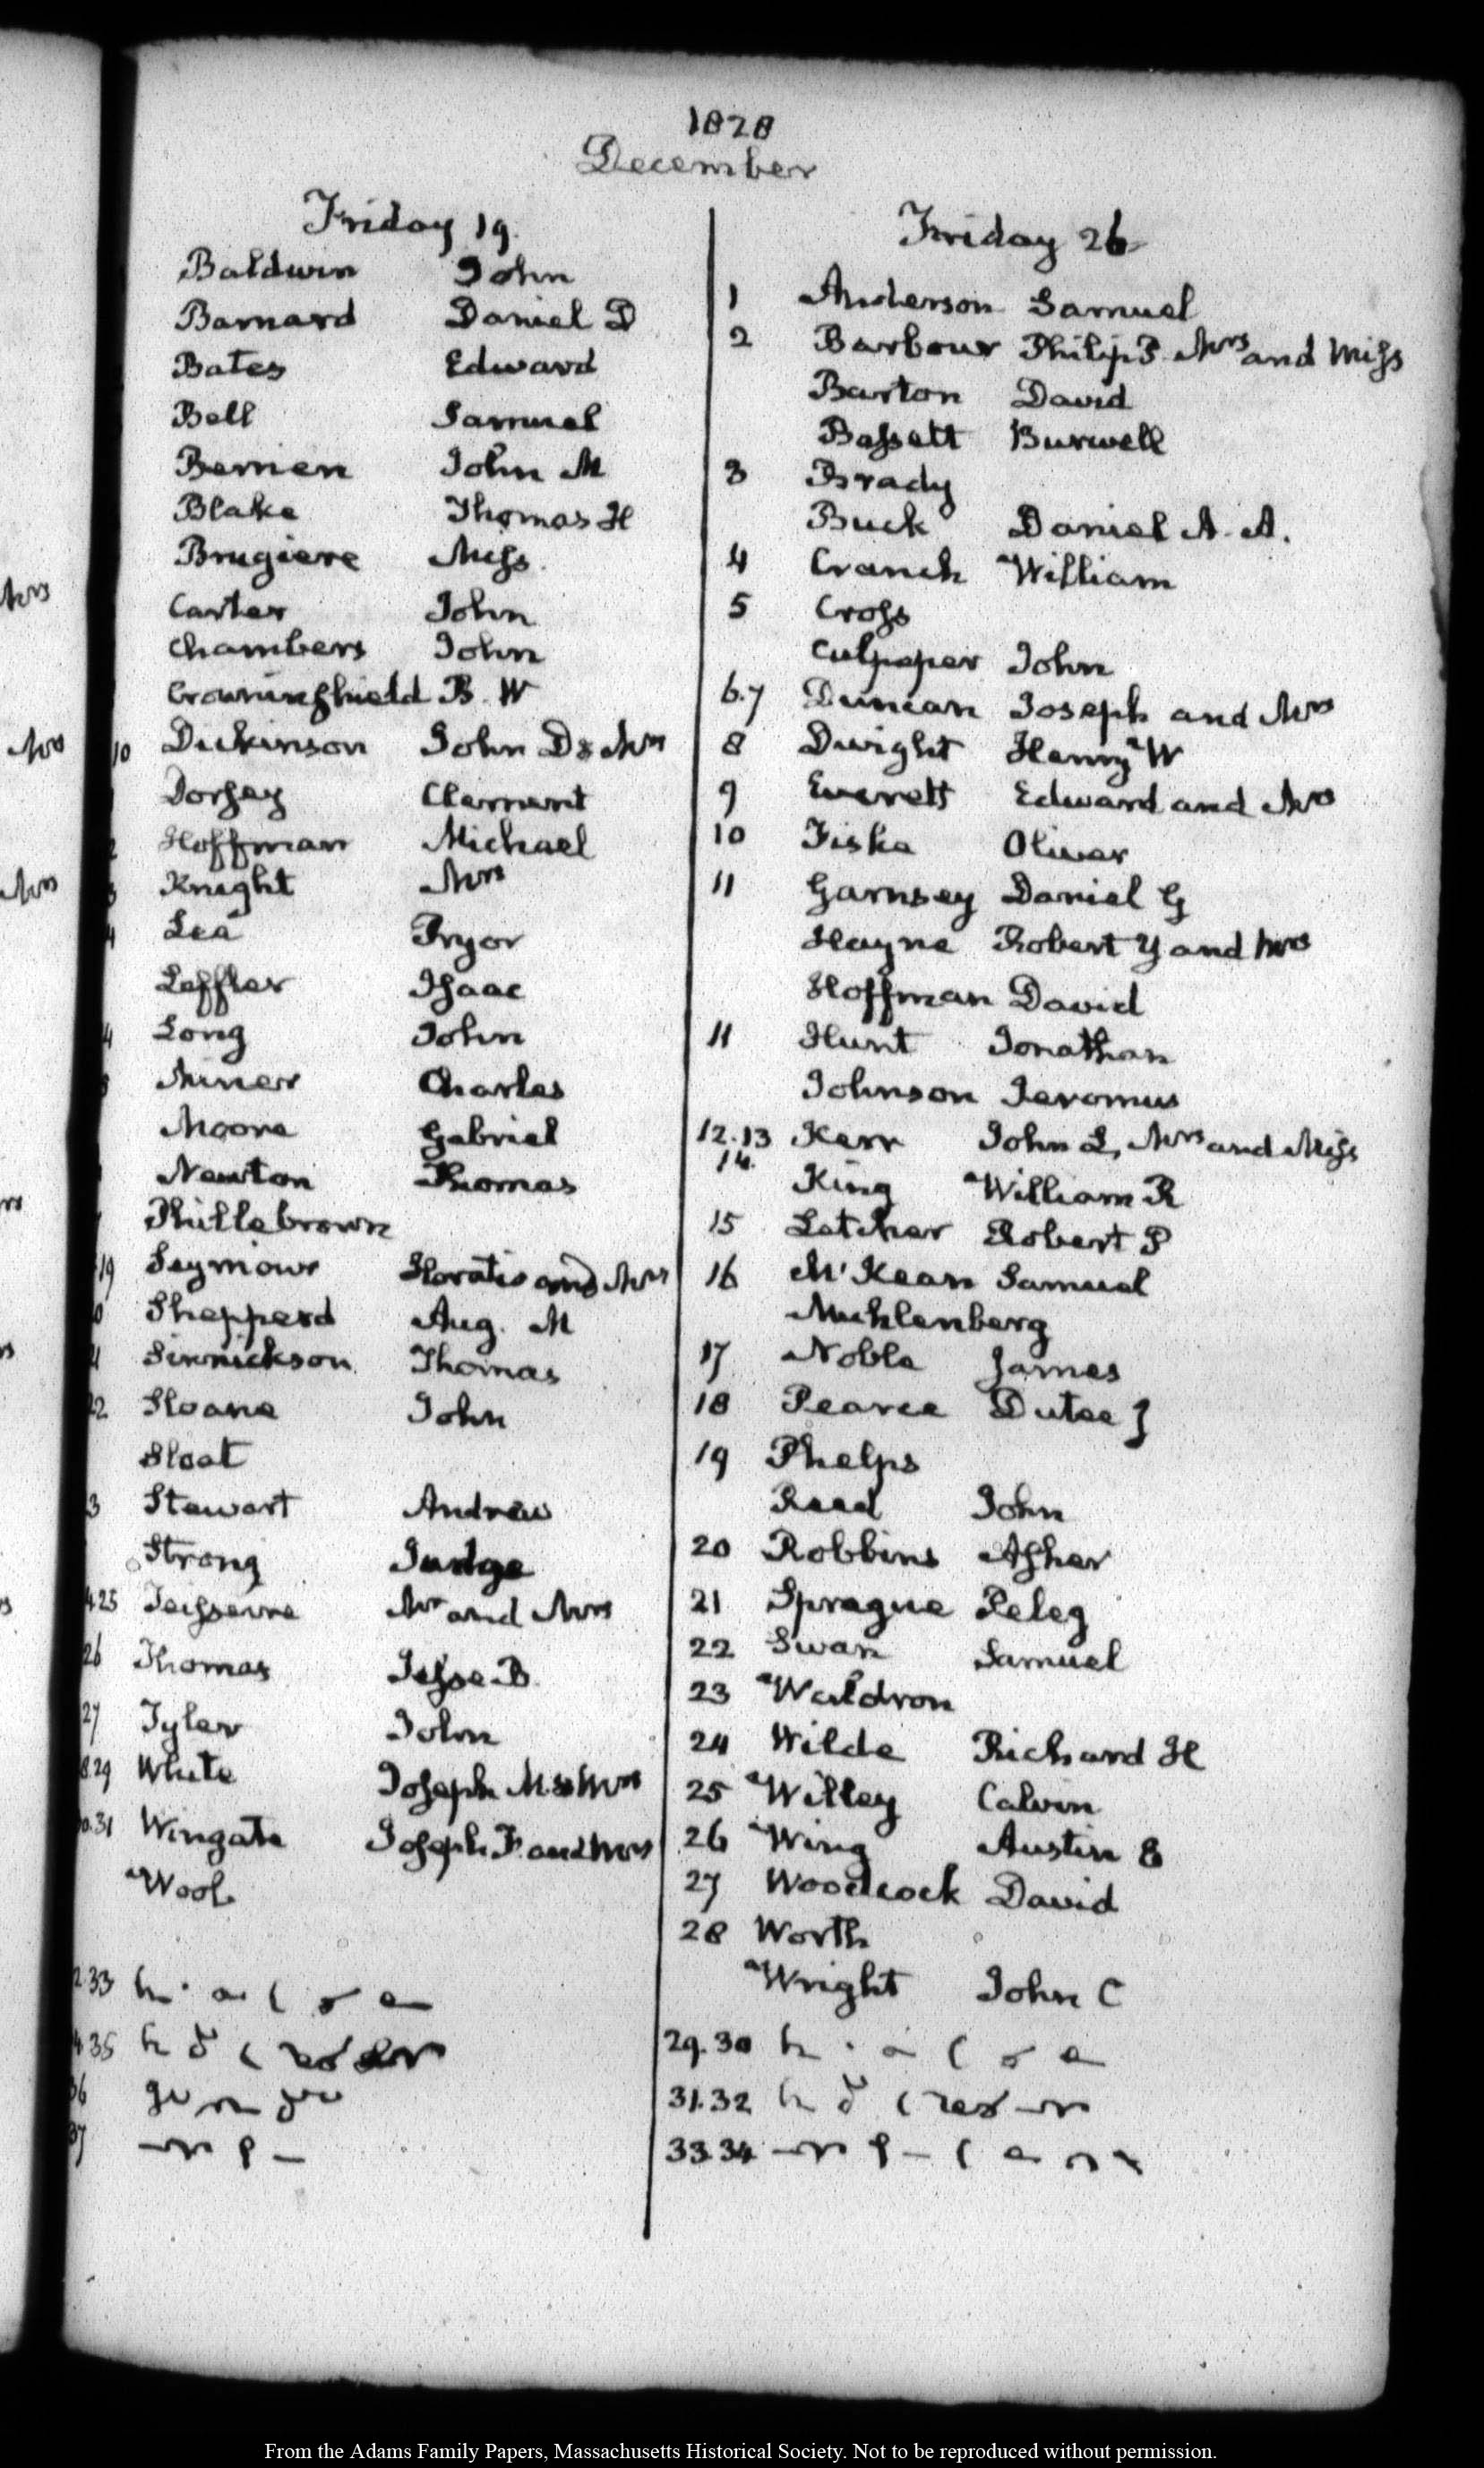 1828
December
Friday 19.
Baldwin John
Barnard Daniel D
Bates Edward
Bell Samuel
Bernien John M
Blake Thomas H
Brugiere Miss.
Carter John
Chambers John
Crowninshield B. W
10 Dickinson John D & Mrs
Dorsey Clement
2 Hoffman Michael
3 Knight Mrs
4 Lea Pryor
Leffler Isaac
4 Long John
5 Miner Charles
Moore Gabriel
Newton Thomas
Phillebrown
19 Seymour Horatio and Mrs
0 Shepperd Aug. M
21 Sinnickson Thomas
22 Sloane John
Sloat
3 Stewart Andrew
Strong Judge
4.25 Teisseire Mr and Mrs
26 Thomas Jesse B.
27 Tyler John
8.29 White Joseph M. & Mrs
0.31 Wingate Joseph F. and Mrs
Wool.
2.33
4.35
36
37
Friday 26
1 Anderson Samuel
2 Barbour Philip P. Mrs and Miss
Barton David
Bassett Burwell
3 Brady
Buck Daniel A. A.
4 Cranch William
5 Cross
Culpeper John
6.7 Duncan Joseph and Mrs
8 Dwight Henry W
9 Everett Edward and Mrs
10 Fiske Oliver
11 Garnsey Daniel G
Hayne Robert Y and Mrs
Hoffman David
11 Hunt Jonathan
Johnson Jeromus
12.13 Kerr John L, Mrs and Miss
14.
King William R
15 Letcher Robert P
16 McKean Samuel
Muhlenberg
17 Noble James
18 Pearce Dutee J
19 Phelps
Reed John
20 Robbins Asher
21 Sprague Peleg
22 Swan Samuel
23 Waldron
24 Wilde Richard H
25 Willey Calvin
26 Wing Austin E
27 Woodcock David
28 Worth
Wright John C
29.30
31.32
33.34
From the Adams Family Papers, Massachusetts Historical Society. Not to be reproduced without permission.